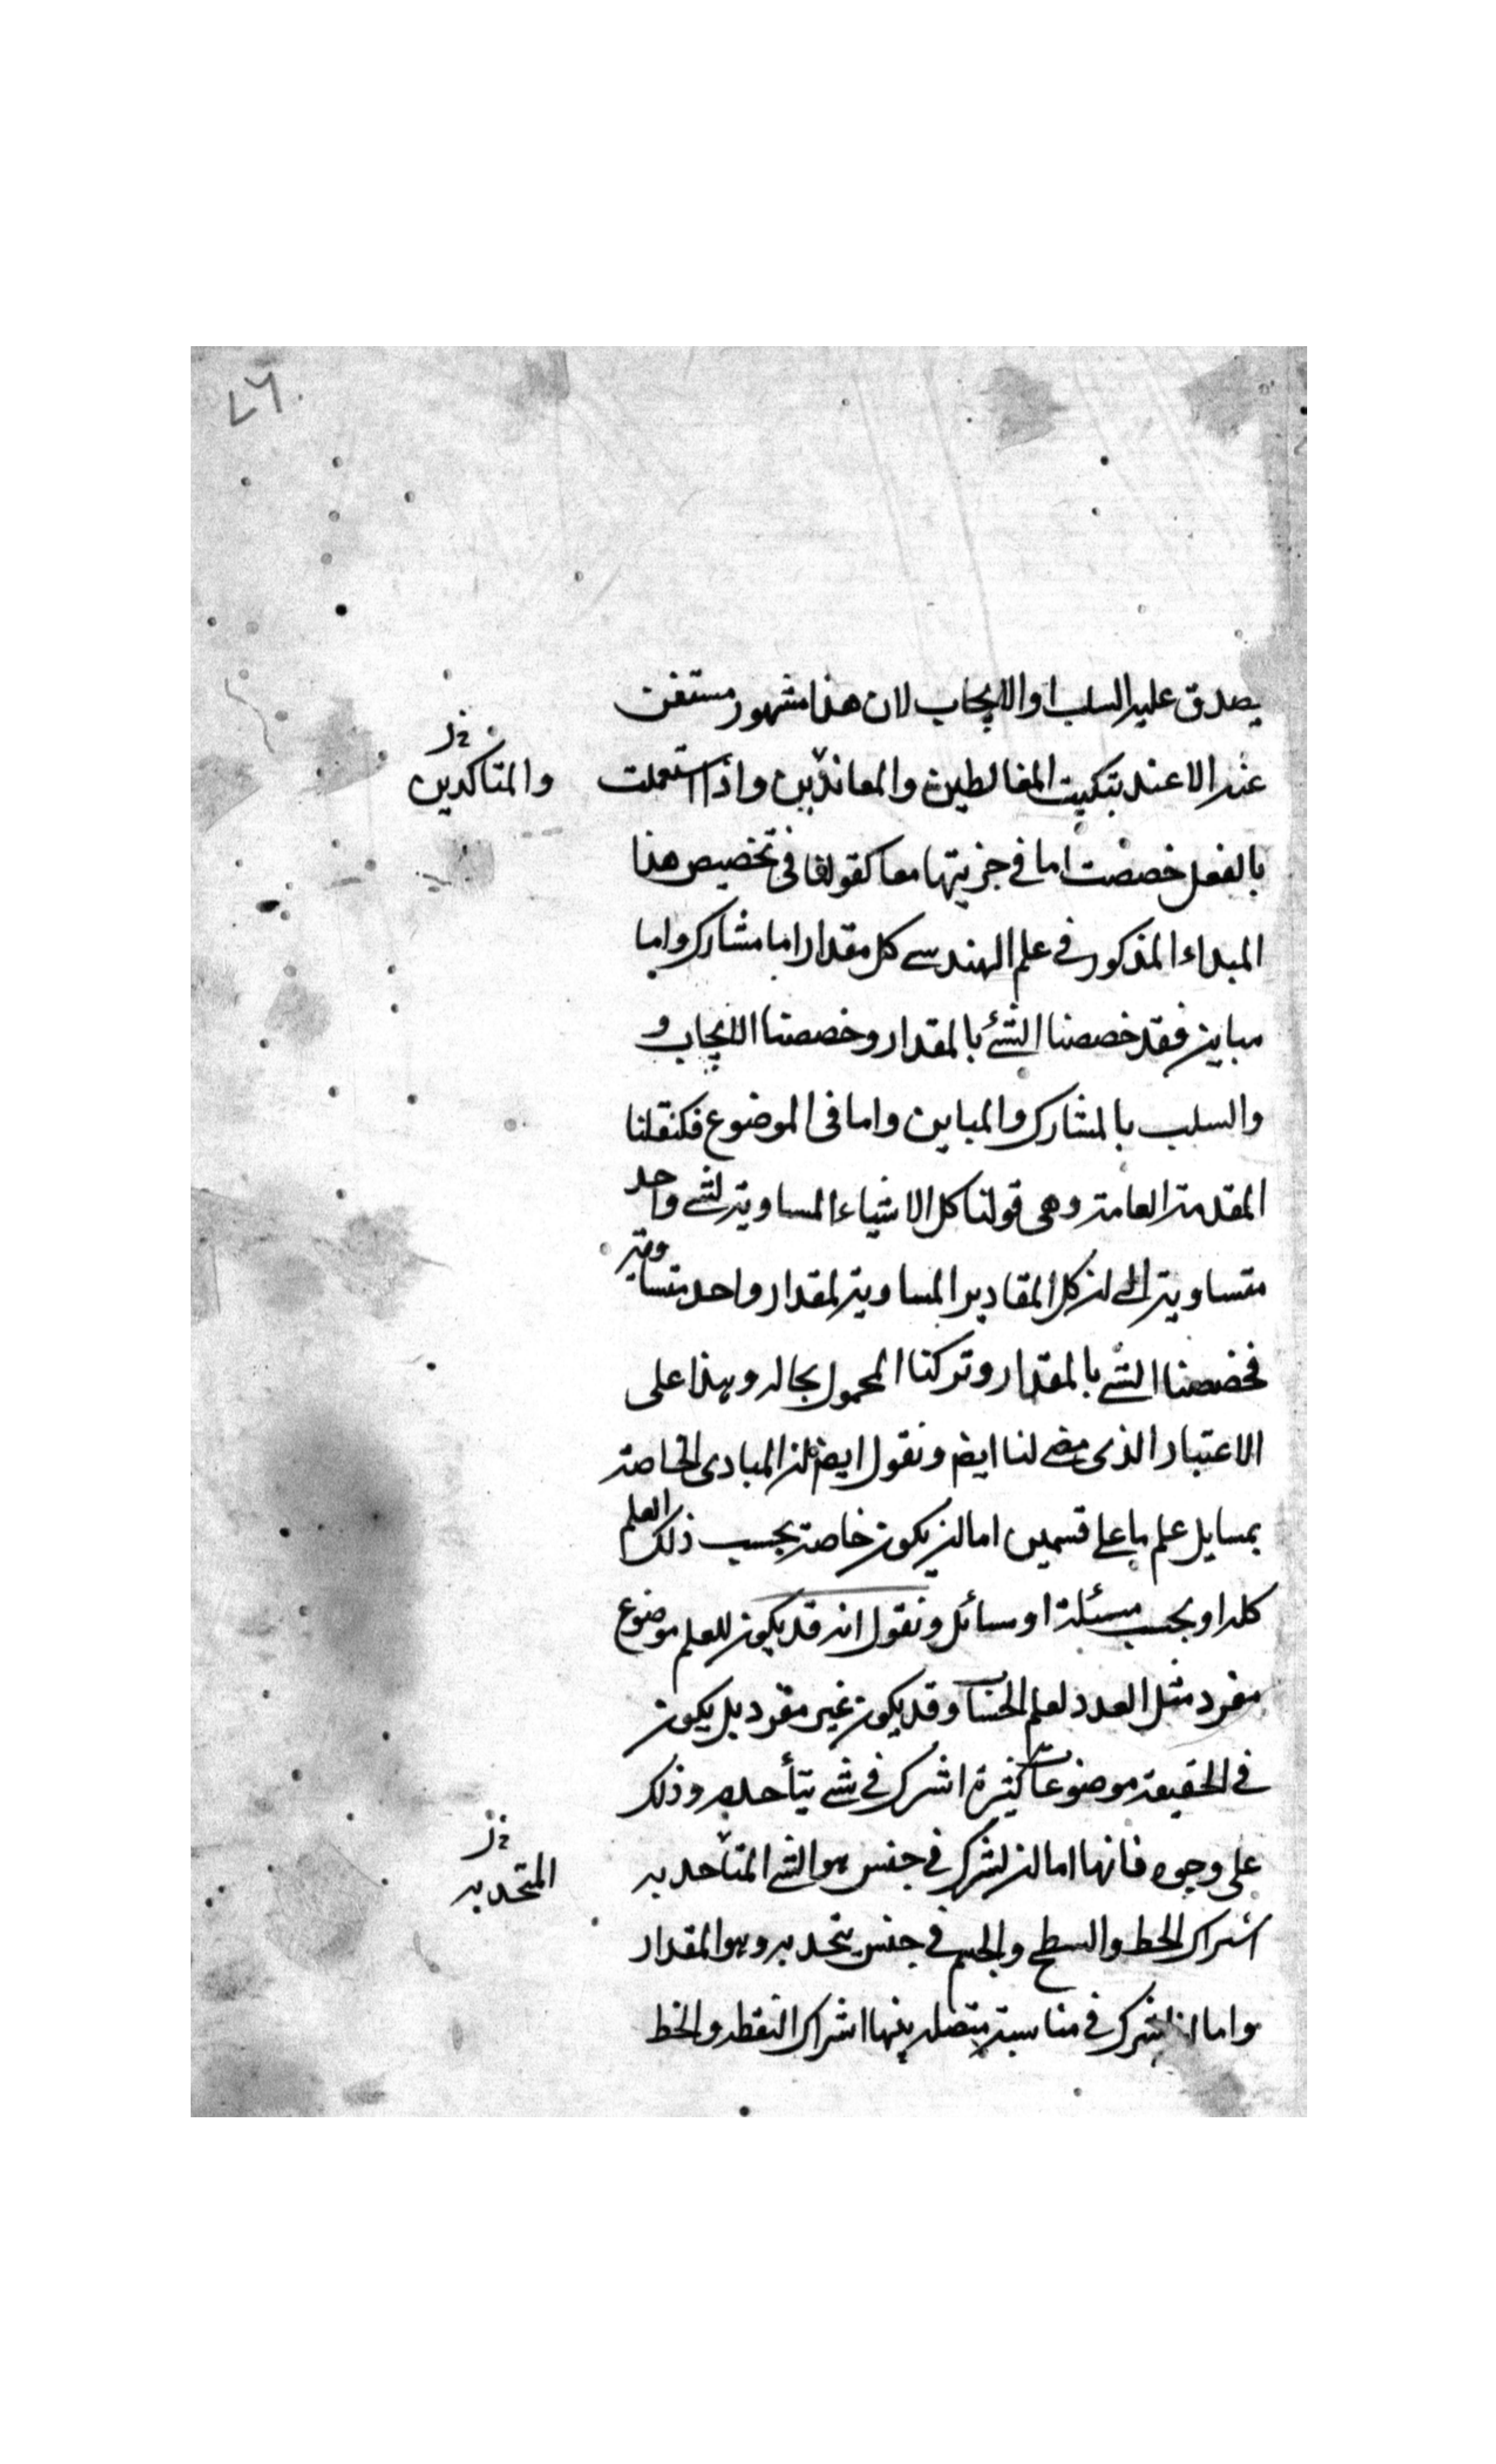 ٤٦
يصدق عليه السلب او الايجاب لان هذا مشهور مستغن
عنه الا عند تبكيت المغالطين والمعاندين واذا استعملت
والمتاكدين
بالفعل خصصت اما في جزيتها معا كقولنا في تخصيص هذا
المبداء المذكور في علم الهندسے كل مقدار اما مشارك واما
مباين فقد خصصنا الشئ بالمقدار وخصصنا الايجاب و
والسلب بالمشارك والمباين واما في الموضوع فكنقلنا
المقدمة العامة وهى قولنا كل الاشياء المساوية لشے واحد
متساوية الى ان كل المقادير المساوية لمقدار واحد متساوية
فخصصنا الشے بالمقدار وتركنا المحمول بحاله وهذا على
الاعتبار الذى مضے لنا ايض ونقول ايض ان المبادى الخاصة
بمسايل علم ما على قسمين اما ان يكون خاصة بحسب ذلك العلم
كله او بحسب مسئلة او مسائل ونقول انه قد يكون للعلم موضوع
مفرد مثل العدد لعلم الحساب وقد يكون غير مفرد بل يكون
في الحقيقة موضوعات كثيرة اشترك في شے يتأحد به وذلك
على وجوه فانها اما ان اشترك في جنس هو الشے المتأحد به
المتحد به
اشتراك الخط والسطح والجسم في جنس يتحد به وهو المقدار
واما ان اشترك في مناسبة متصلة بينها اشتراك النقطه والخط